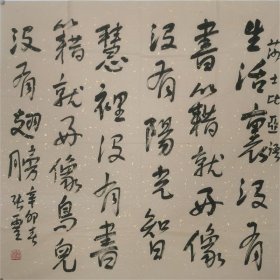 莎士比亞語
生活裏沒有
書籍就好像
沒有陽光智
慧裡沒有書
籍就好像鳥兒
沒有翅膀 辛卯春
張靈